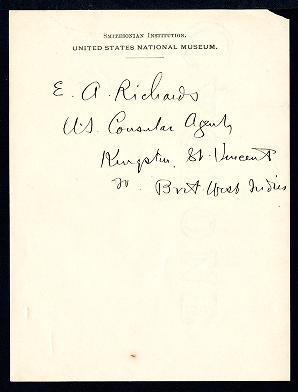 SMITHSONIAN INSTITUTION.
UNITED STATES NATIONAL MUSEUM.
E. A. Richards
U.S. Consular Agent,
Kingston, St. Vincent
Brit West Indies